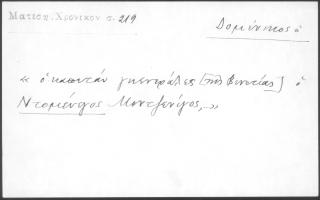 Ματεσ. Χρονικον σ. 219
Δομένικος ὁ
« ὁ καπετάν γκενεράλες [τῆς Βενετίας] ὁ
Ντομένγος Μοντζενίγος,..»